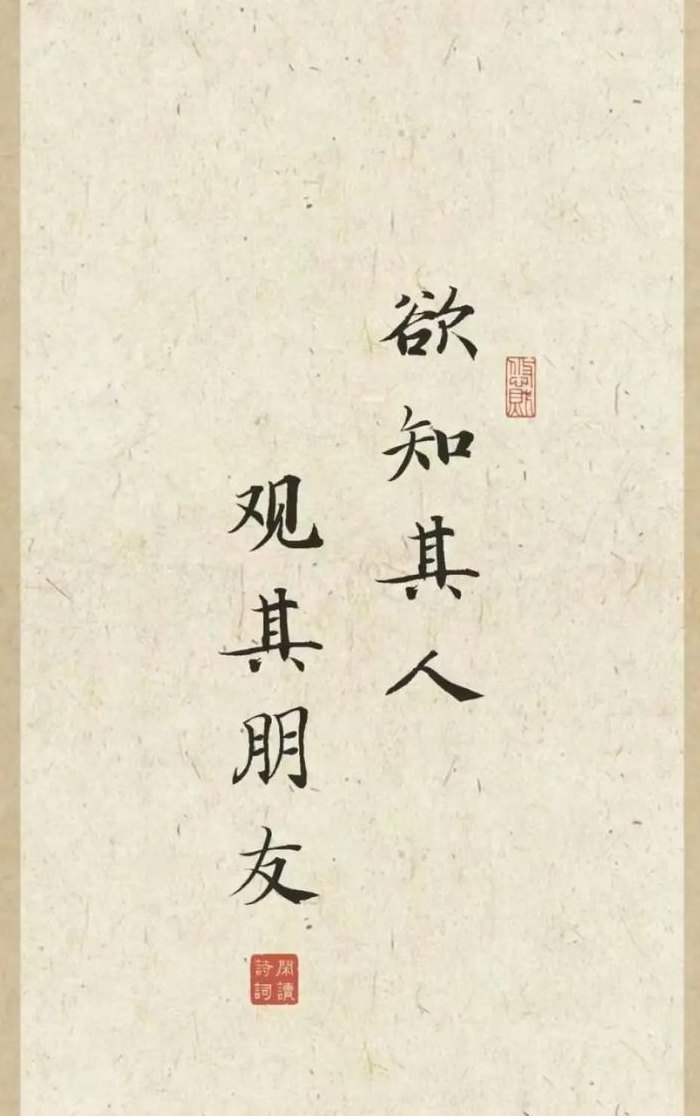 欲知其人
观其朋友
閑讀
詩詞